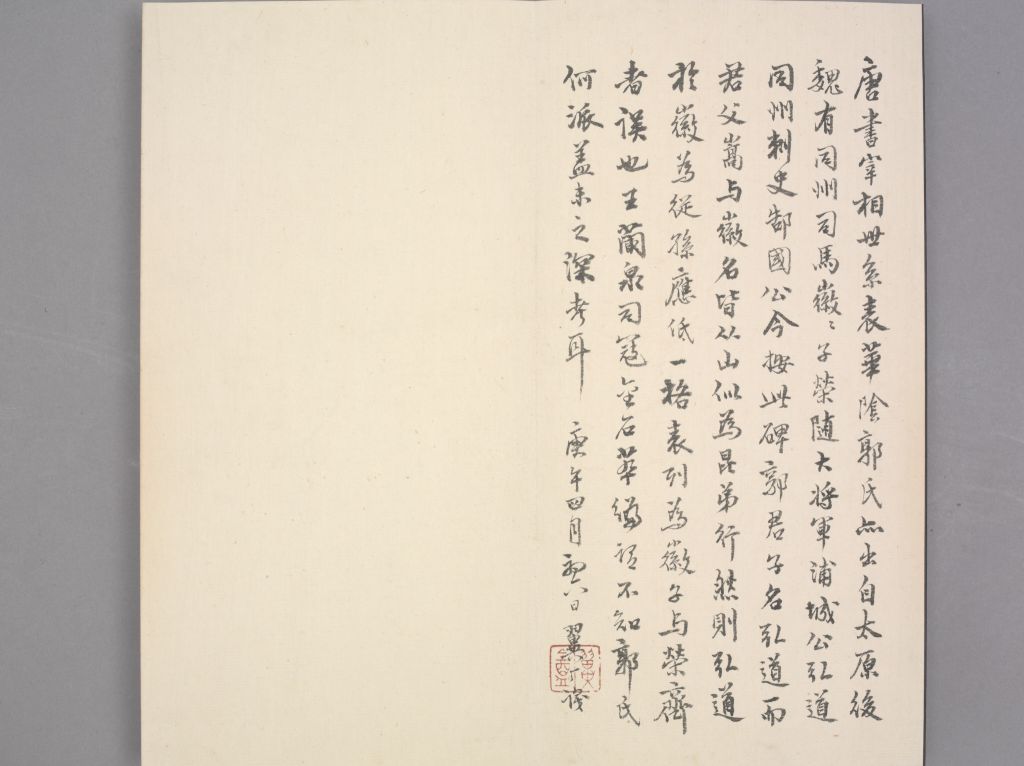 唐書宰相世系表華陰郭氏亦出自太原後
魏有同州司馬徽〻子榮隨大將軍蒲城公弘道
同州刺史郜國公今按此碑郭君子名弘道而
君父嵩与徽名皆从山似為昆弟行然則弘道
於徽為從孫應低一格表列為徽子与榮齊
者误也王蘭泉司寇金石萃編谓不知郭氏
何派盖未之深考耳 庚午四月初八日翼 识